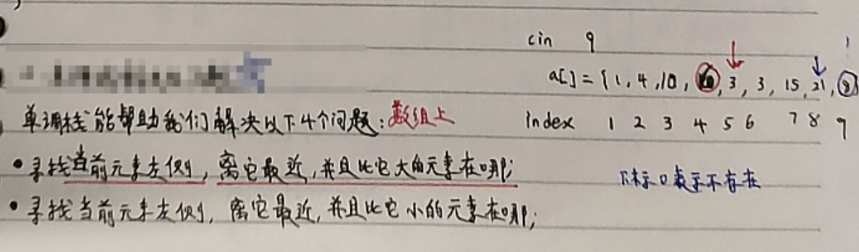 cin 9
a[] = {1, 4, 10, 3, 3, 15, 21, 8}
单调栈能帮助我们解决以下4个问题：数组上
index 1 2 3 4 5 6 7 8 9
•寻找当前元素左侧，离它最近，并且比它大的元素在哪；
下标0表示不存在
•寻找当前元素左侧，离它最近，并且比它小的元素在哪；